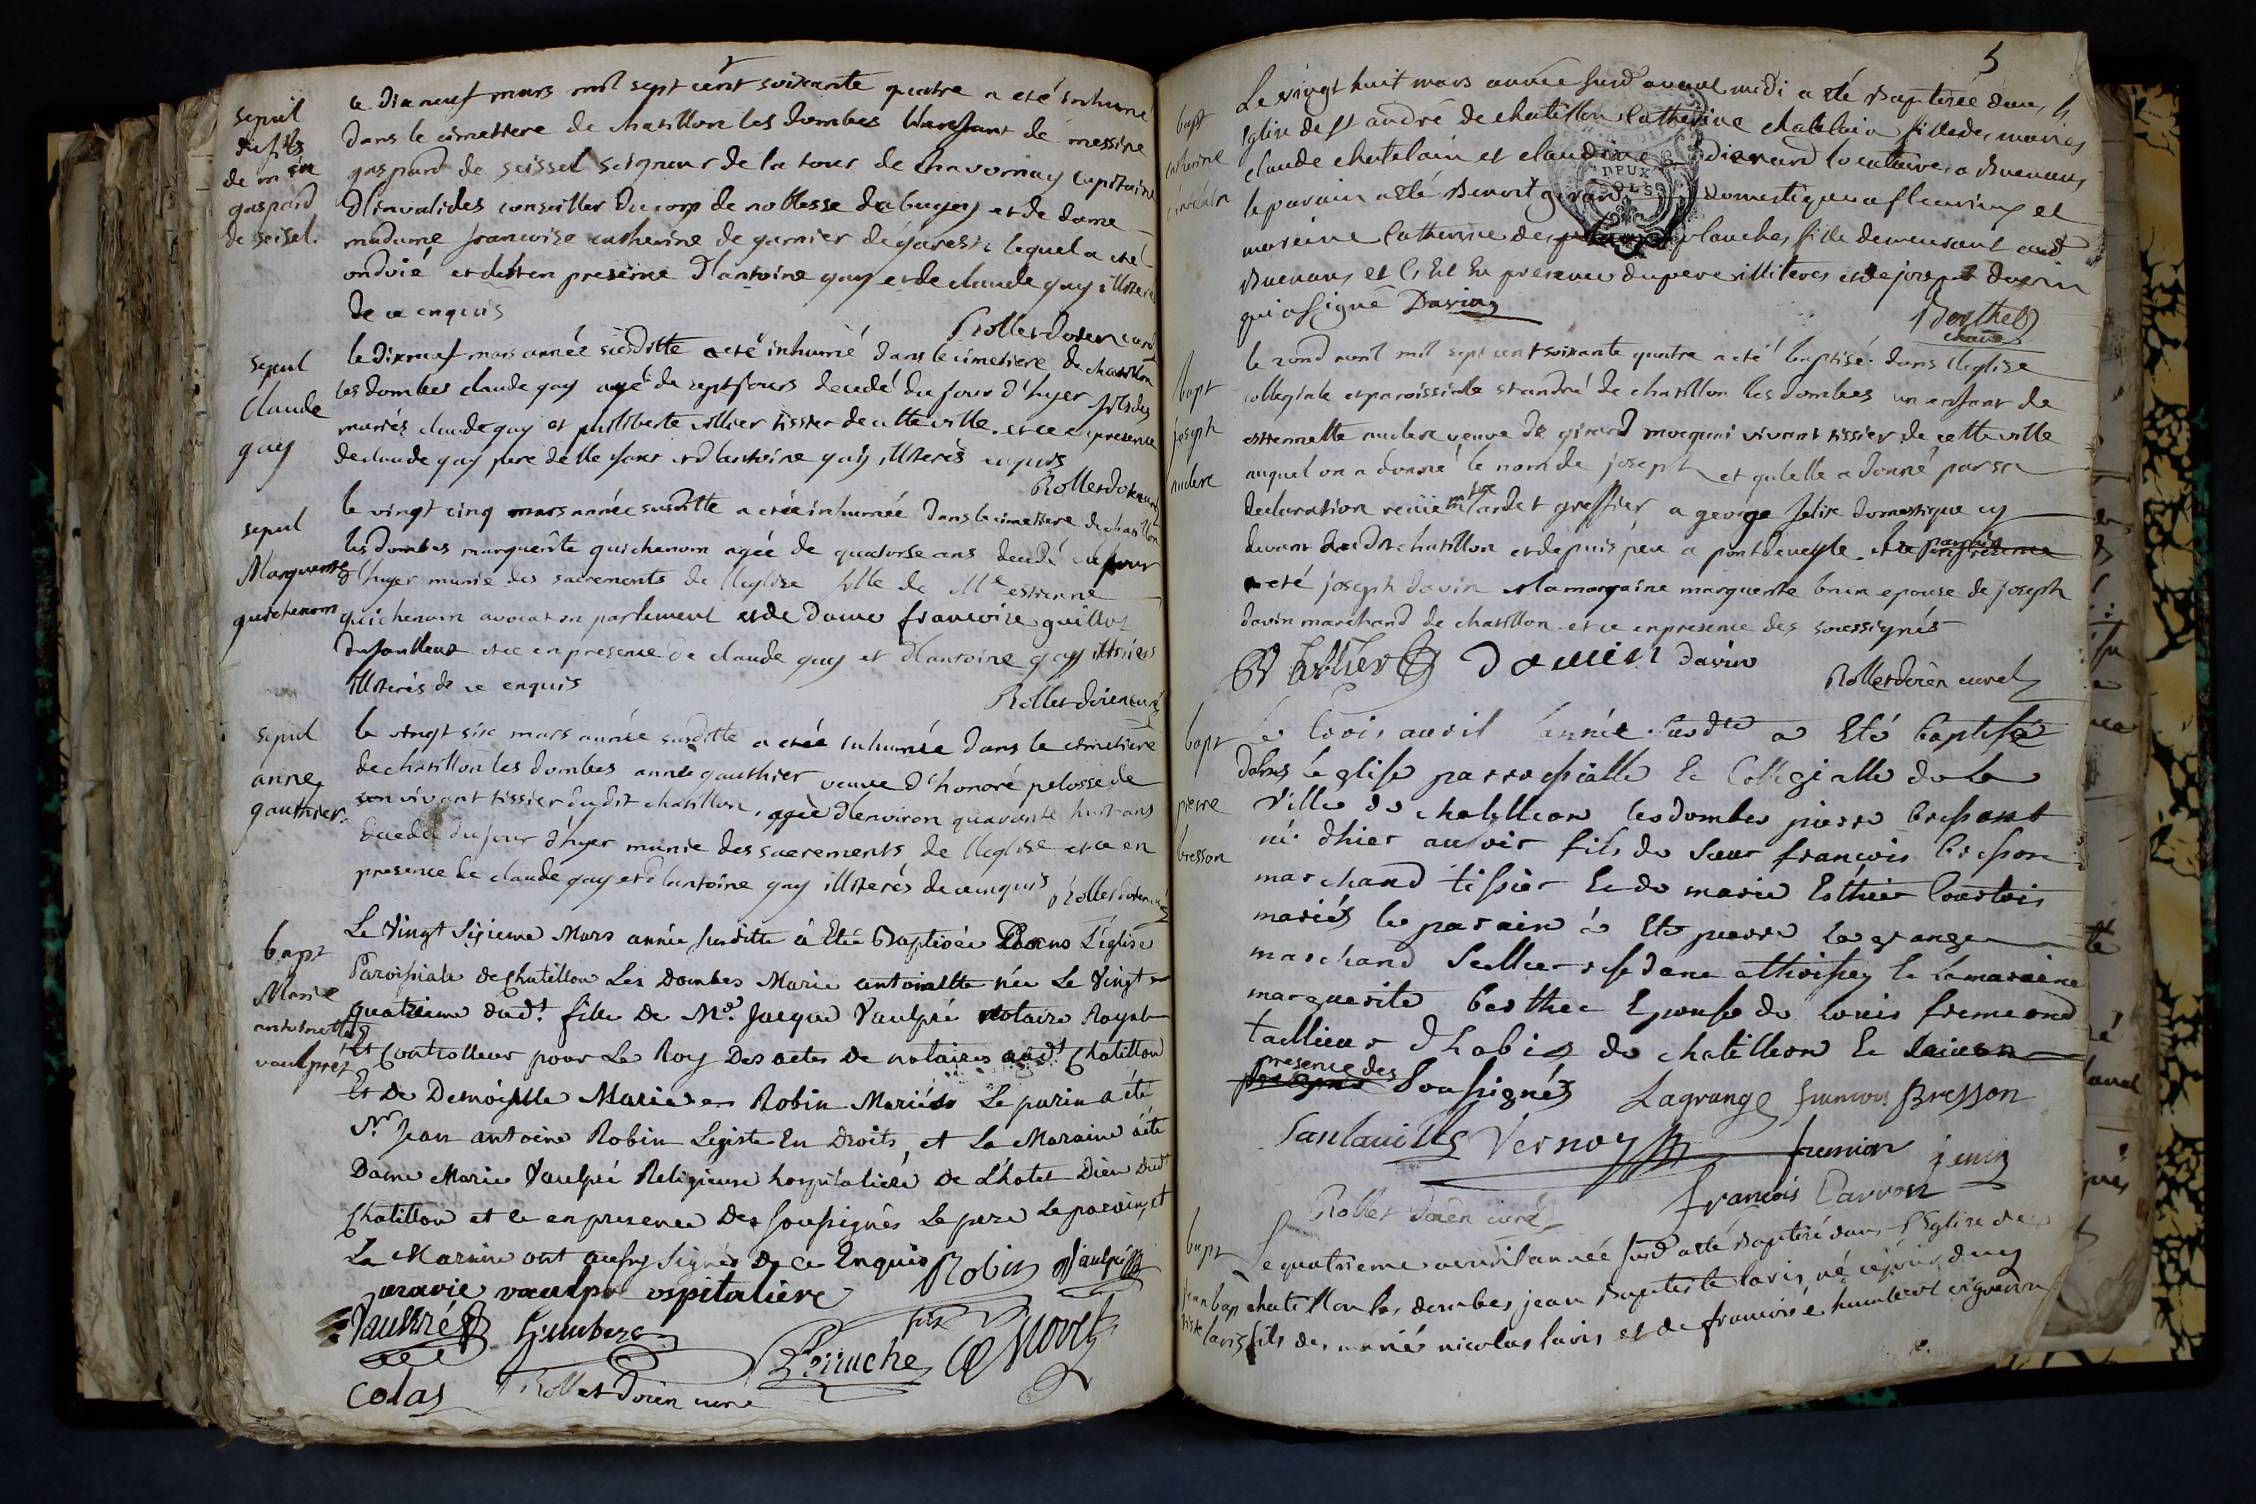 sepul
du fils
de m re
gaspard
de seisel.
le dixneuf mars mil sept cent soixante quatre a eté inhumé
dans le cimetiere de chatillon les dombes l'enfant de messire
gaspard de seissel seigneur de la tour de chavornay capitaine
d'invalides conseiller du corps de noblesse du bugey et de dame
madame francoise catherine de garnier de garests lequel a eté
ondoié et ce en presence d'antoine gay et de claude gay illiteres
de ce enquis
Rollet dorien curé
sepul
Claude
gay
le dixneuf mars année susditte a eté inhumé dans le cimetiere de chatillon
les dombes claude gay agé de sept jours decedé du jour d'hyer fils des
mariés claude gay et philiberte villier tissier de cette ville. et ce en presence
de claude gay pere de l'enfant et d'antoine gay illiterés enquis
Rollet dorien curé
sepul
Marguerite
guichenom
le vingt cinq mars année susditte a etée inhumée dans le cimetiere de chatillon
les dombes marguerite guichenom agée de quatorse ans decedé du jour
d'hyer munie des sacrements de l'eglise fille de Me estienne
guichenom avocat en parlement et de dame francoise guillot
et ce en presence de claude gay et d'antoine gay
illiterés de ce enquis
Rollet dorien curé
sepul
anne
gauthier.
le vingt six mars année susditte a etée inhumée dans le cimetiere
de chatillon les dombes anne gauthier veuve d'honoré pelosse de
son vivant tissier dudit chatillon, agée d'environ quarante huit ans
decedée du jour d'hyer munie des sacrements de l'eglise et ce en
presence de claude gay et d'antoine gay illiterés de ce enquis Rollet dorien curé
bapt
Marie
antoinette
vaulpré
Le Vingt sixieme Mars année susditte à Eté Baptisée Dans L'église
Paroissiale de Chatillon Les Dombes Marie antoinette née Le Vingt
quatrieme dudt. fille De Me. Jacque Vaulpré notaire Royal
Et Controlleur pour Le Roy Des actes de notaires audt. Chatillon
Et De Demoiselle Marie Robin Mariés Le parin a été
Mr Jean antoine Robin Legiste En Droits, et La Maraine a été
Dame Marie Vaulpré Religieuse hospitaliere de L'hotel Dieu Dudt
Chatillon et ce en presence Des soussignés Le pere Le parain, et
La Maraine ont aussy signés De Ce Enquis Robin Vaulpré
marie vaulpré ospitaliere
Vaulpré Humbert fils
Perruche Morel
Colas Rollet Dorien curé
5
bapt
catherine
chatelain
Le vingt huit mars année susd avant midi a été Baptisée dans l
eglise de st andré de chatillon Catherine chatelain fille des mariés
claude chatelain et claudine locataire a Buenans
le parain a été Benoit girard Domestique a fleurieux et
mareine Catherine des planches fille demeurant aud
Buenans et ce Et En presence du pere illiteres et de joseph davin
qui a signé Davin
Berthet
DEUX
SOLS
bapt
joseph
auclerc
le second avril mil sept cent soixante quatre a eté baptisé dans l'eglise
collegiale et paroissialle st andré de chatillon les dombes un enfant de
estiennette auclerc veuve de girard morguni vivant tissier de cette ville
auquel on a donné le nom de joseph et qu'elle a donné par sa
declaration recüe greffier a george felix domestique cy
devant dudit chatillon et depuis peu a pontdeveyle. et le parrain
a eté joseph davin et la margaine marguerite brun epouse de joseph
davin marchand de chatillon et ce en presence des soussignés
Berthet Davin davin
Rollet dorien curé
bapt
pierre
bresson
Le trois avril l'année susdte a Eté baptisé
dans leglise parrossialle Et Collegialle de La
Ville de chatillion les dombes pierre bressont
né dhier au soir fils de sieur françois bresson
marchand tissier Et de marie Esthier Courtois
mariés le parain a Eté pierre la grange
marchand sellier resident a thoissey Et La maraine
marguerite berthet Epouse de louis fremiond
tallieur dhabis de chatillion Et
presence des
soussignés Lagrange francois Bresson
Sanlaville Vernoy fremion jenin
françois Carron
Rollet Dorien curé
bapt
jean bap
tiste
laris
Le quatrieme avril année susd a eté Baptisé dans l'Eglise de
chatillon les dombes jean Baptiste laris né ce jour
fils des mariés nicolas laris et de francoise humbert vigneron